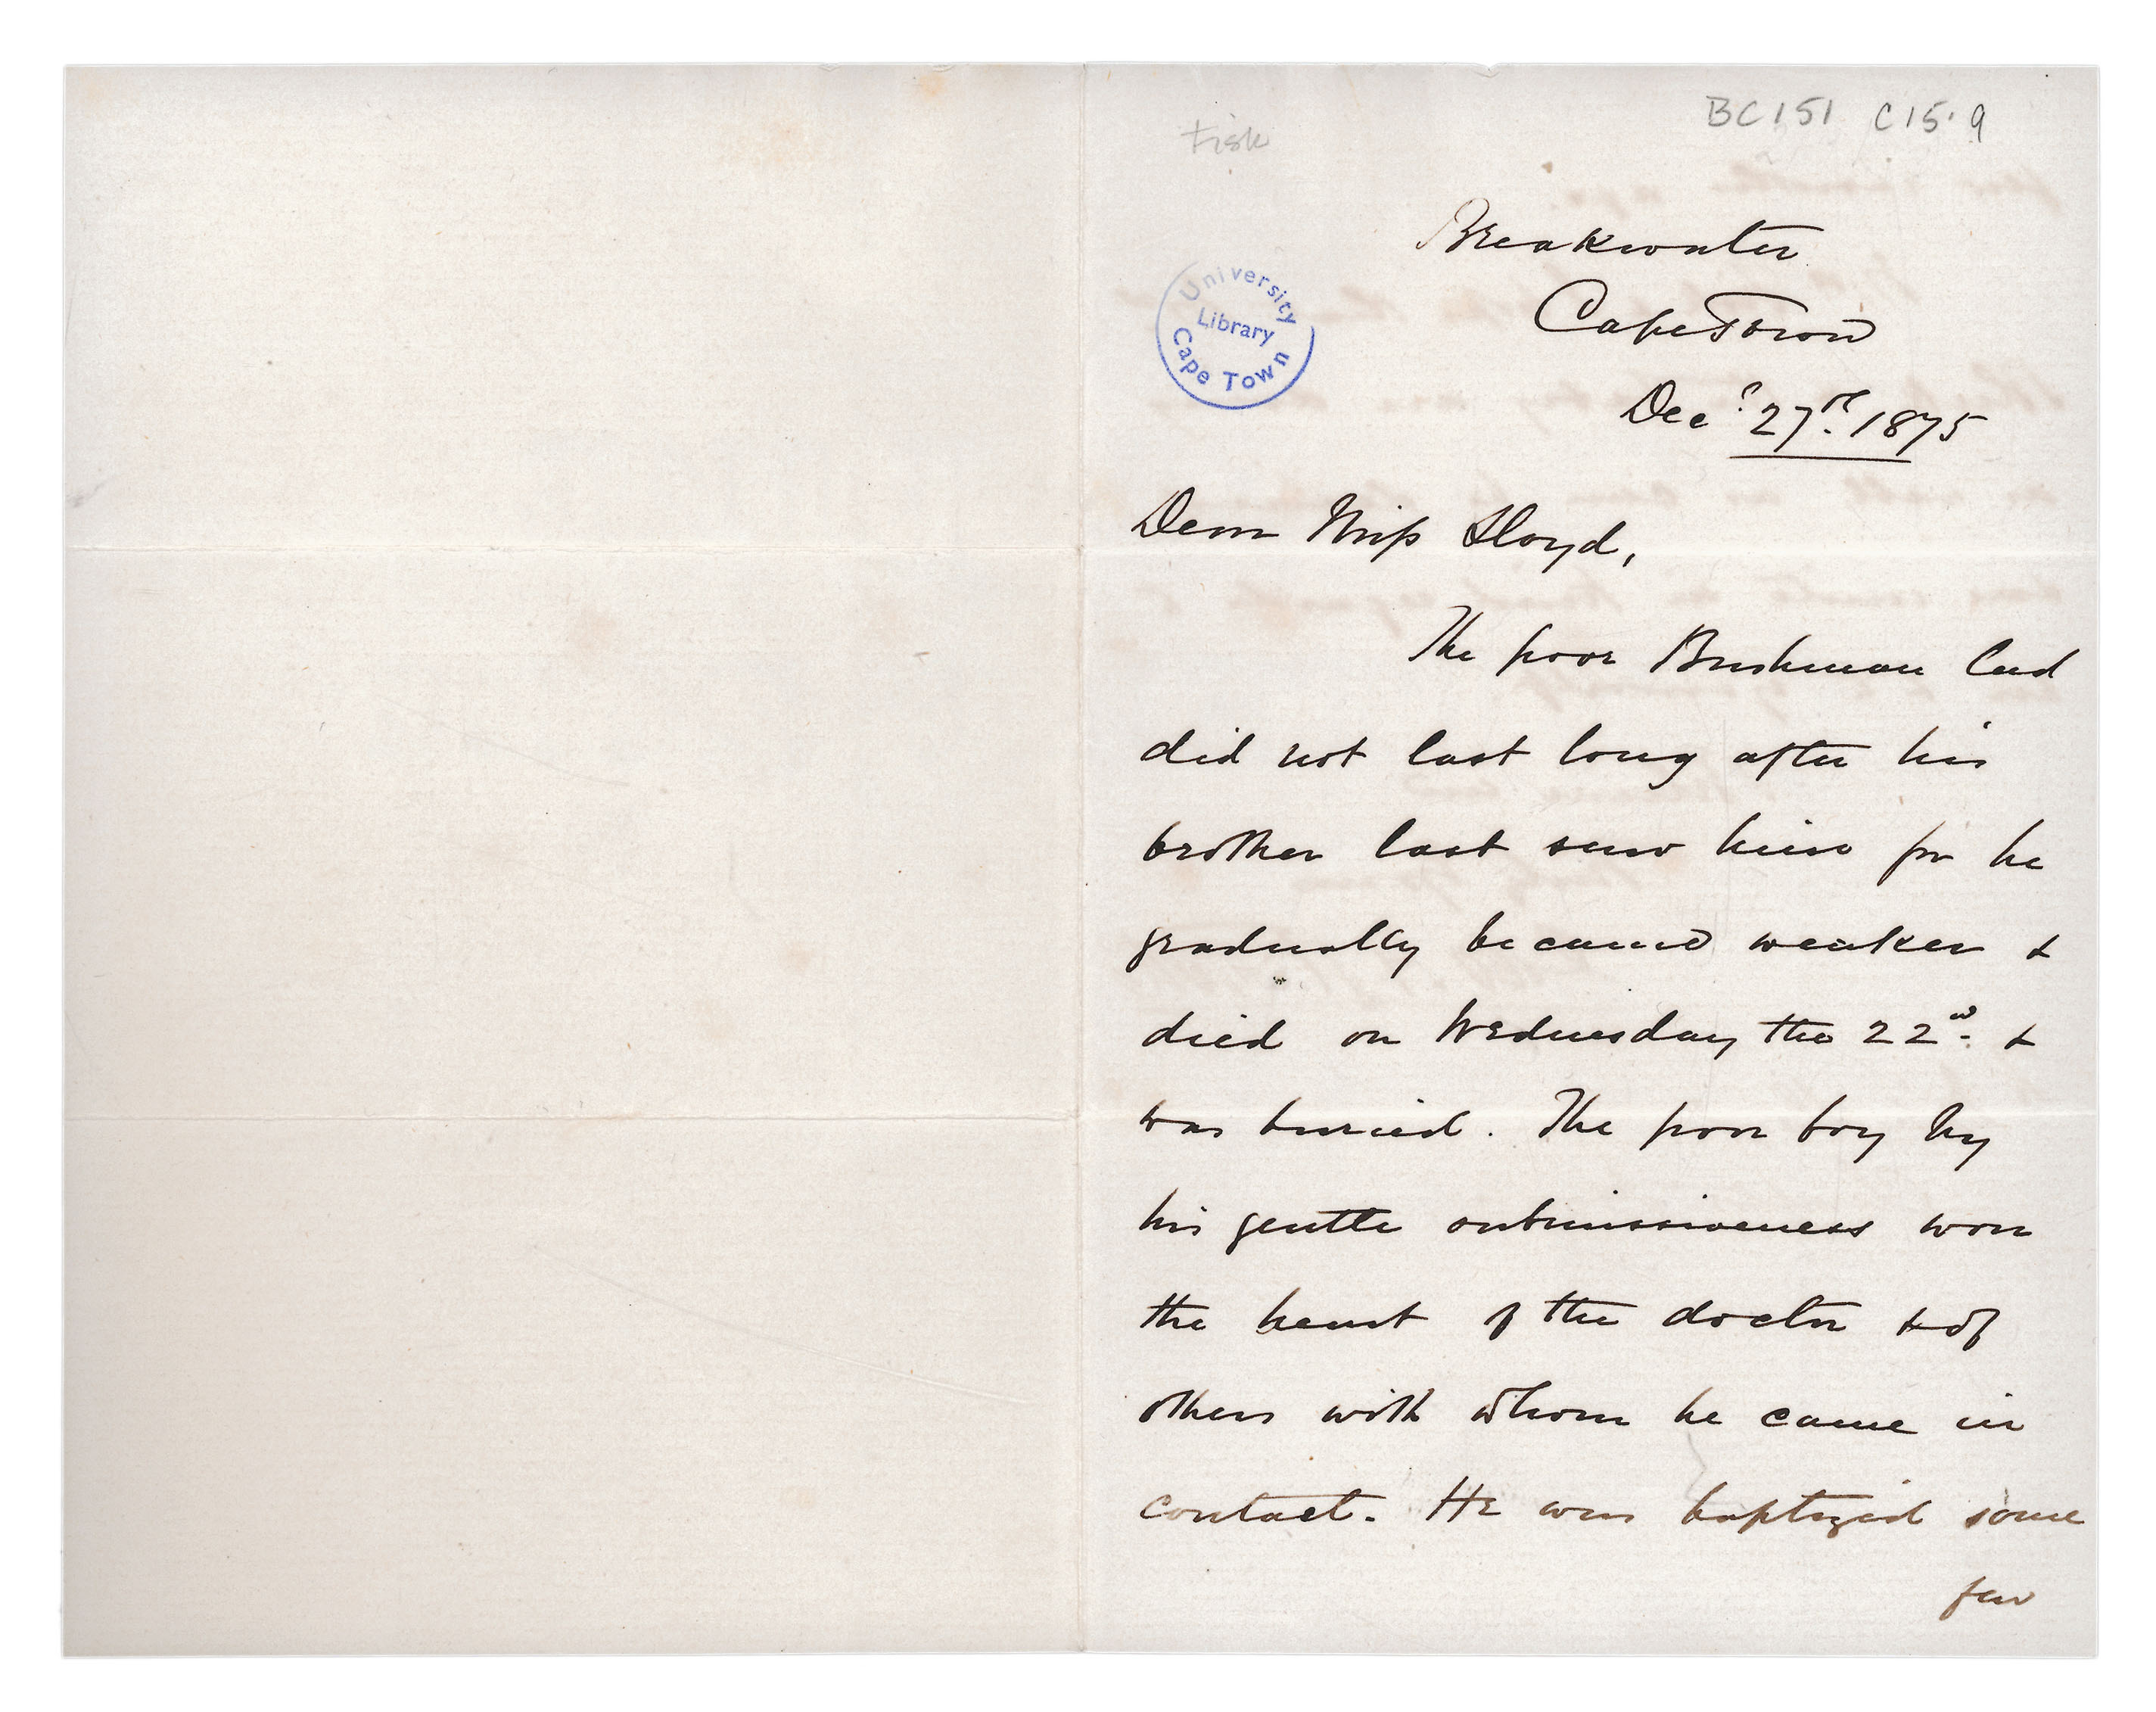 BC151 C15.9
Fisk
Breakwater
Cape Town
Decr 27th 1875
University
Library
Cape Town
Dear Miss Lloyd,
The poor Bushman lad
did not last long after his
brother last saw him for he
gradually became weaker &
died on Wednesday the 22d. &
was buried. The poor boy by
his gentle submissiveness won
the heart of the doctor & of
others with whom he came in
contact. He was baptized some
few